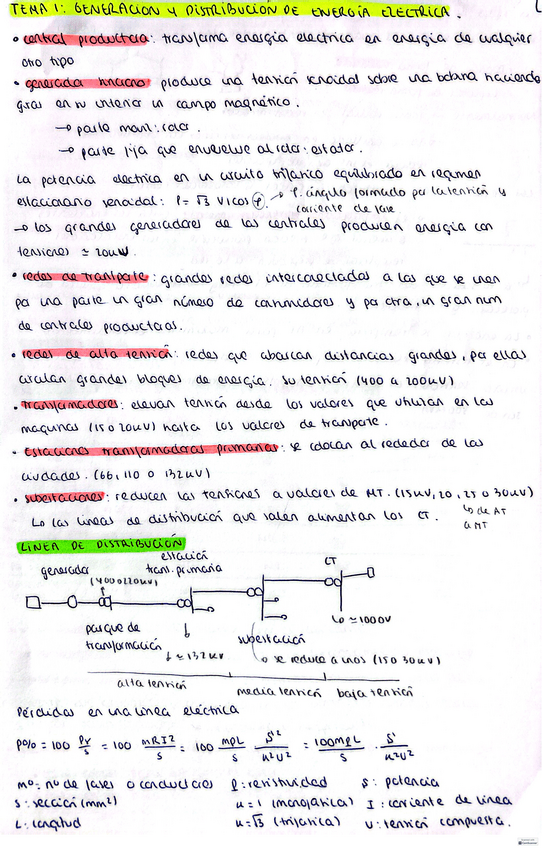 TEMA 1: GENERACION Y DISTRIBUCION DE ENERGÍA ELECTRICA.
• central productora: transforma energía electrica en energia de cualquier
otro tipo
• generador síncrono produce una tensión senoidal sobre una bobina haciendo
girar en su interior un campo magnético.
→ parte movil: rotor.
→ parte fija que envuelve al rotor: estator.
La potencia electrica en un circuito trifasico equilibrado en regimen
estacionario senoidal: P = √3 V I cos φ. → φ. ángulo formado por la tensión y
corriente de fase
→ los grandes generadores de las centrales producen energía con
tensiones ≃ 20kV.
• redes de transporte: grandes redes interconectadas a las que se unen
por una parte un gran número de consumidores y por otra, un gran num
de centrales productoras.
• redes de alta tensión: redes que abarcan distancias grandes, por ellas
circulan grandes bloques de energía. Su tensión (400 a 200kV)
• Transformadores: elevan tensión desde los valores que utilizan en las
maquinas (15 o 20kV) hasta los valores de transporte.
• Estaciones transformadoras primarias: se colocan alrededor de las
ciudades. (66, 110 o 132kV)
• subestaciones: reducen las tensiones a valores de MT. (15kV, 20, 25 o 30kV)
↳ las lineas de distribución que salen alimentan los CT. ↳ de AT
a MT
LINEA DE DISTRIBUCIÓN
generador
estación
trans. primaria
CT
(400 o 220kV)
parque de
transformación
↓ ≃ 132kV
subestación
↳ ≃ 1000V
o se reduce a unos (15 o 30kV)
alta tensión
media tensión
baja tensión
Pérdidas en una línea eléctrica
P% = 100 Pv/S = 100 mRI2/S = 100 mρL/s S²/u²U² = 100mρL/s · S/u²U²
m: nº de fases o conductores ρ: resistividad S: potencia
s: sección (mm²) u = 1 (monofásica) I: corriente de línea
L: longitud u = √3 (trifásica) U: tensión compuesta.